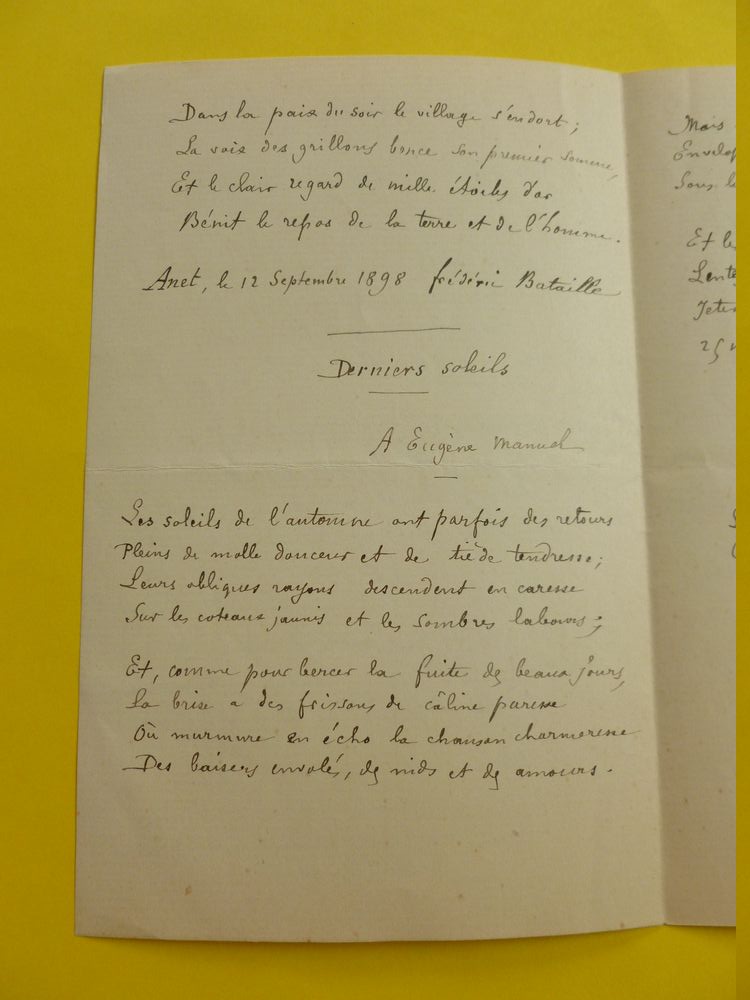 Dans la paix du soir le village s'endort ;
La voix des grillons berce son premier somme,
Et le clair regard de mille étoiles d'or
Bénit le repos de la terre et de l'homme.
Anet, le 12 Septembre 1898 frédéric Bataille
Derniers soleils
A Eugène Manuel
Les soleils de l'automne ont parfois des retours
Pleins de molle douceur et de tiède tendresse ;
Leurs obliques rayons descendent en caresse
Sur les coteaux jaunis et les sombres labours ;
Et, comme pour bercer la fuite des beaux jours,
La brise a des frissons de câline paresse
Où murmure en écho la chanson charmeresse
Des baisers envolés, des nids et des amours.
Mais
Envelop
Sous l
Et le
Lente
Jete
25